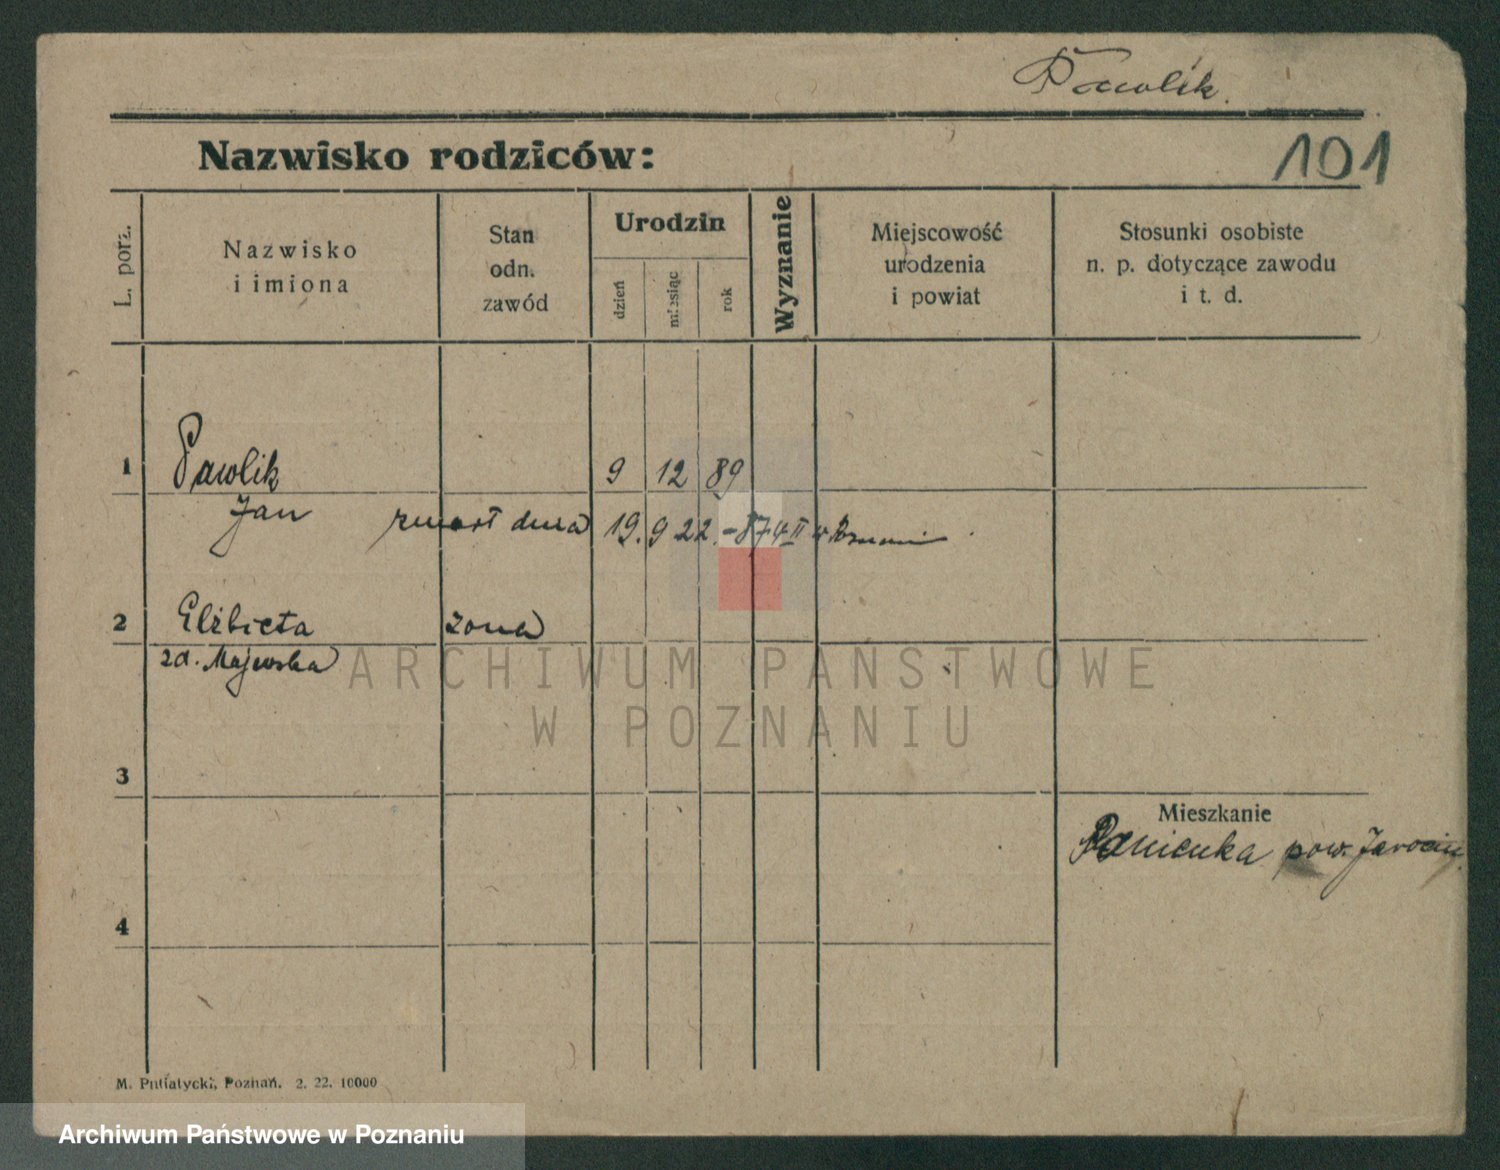 Pawlik.
101
Nazwisko rodziców:
L. porz.
Nazwisko
i imiona
Stan
odn.
zawód
Urodzin
dzień
miesiąc
rok
Wyznanie
Miejscowość
urodzenia
i powiat
Stosunki osobiste
n. p. dotyczące zawodu
i t. d.
1 Pawlik 9 12 89
Jan zmarł dnia 19. 9 22. - 874 II w Poznaniu
2 Elżbieta żona
zd. Majewska
ARCHIWUM PAŃSTWOWE
W POZNANIU
3
Mieszkanie
pow. Jarocin
4
M. Putiatycki, Poznań. 2. 22. 10000
Archiwum Państwowe w Poznaniu